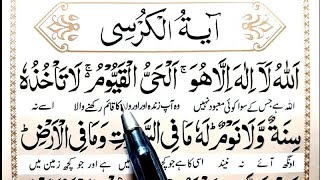 آیۃُ الکُرسی
اَللّٰهُ لَاۤ اِلٰهَ اِلَّا هُوَ ۚ اَلْحَیُّ الْقَیُّوْمُ ۚ لَا تَاْخُذُهٗ
اللہ ہے جس کے سوا کوئی معبود نہیں وہ آپ زندہ اور اوروں کا قائم رکھنے والا اسے نہ
سِنَةٌ وَّلَا نَوْمٌ ؕ لَهٗ مَا فِی السَّمٰوٰتِ وَمَا فِی الْاَرْضِ ؕ
اونگھ آئے نہ نیند اسی کا ہے جو کچھ میں ہے اور جو کچھ زمین میں